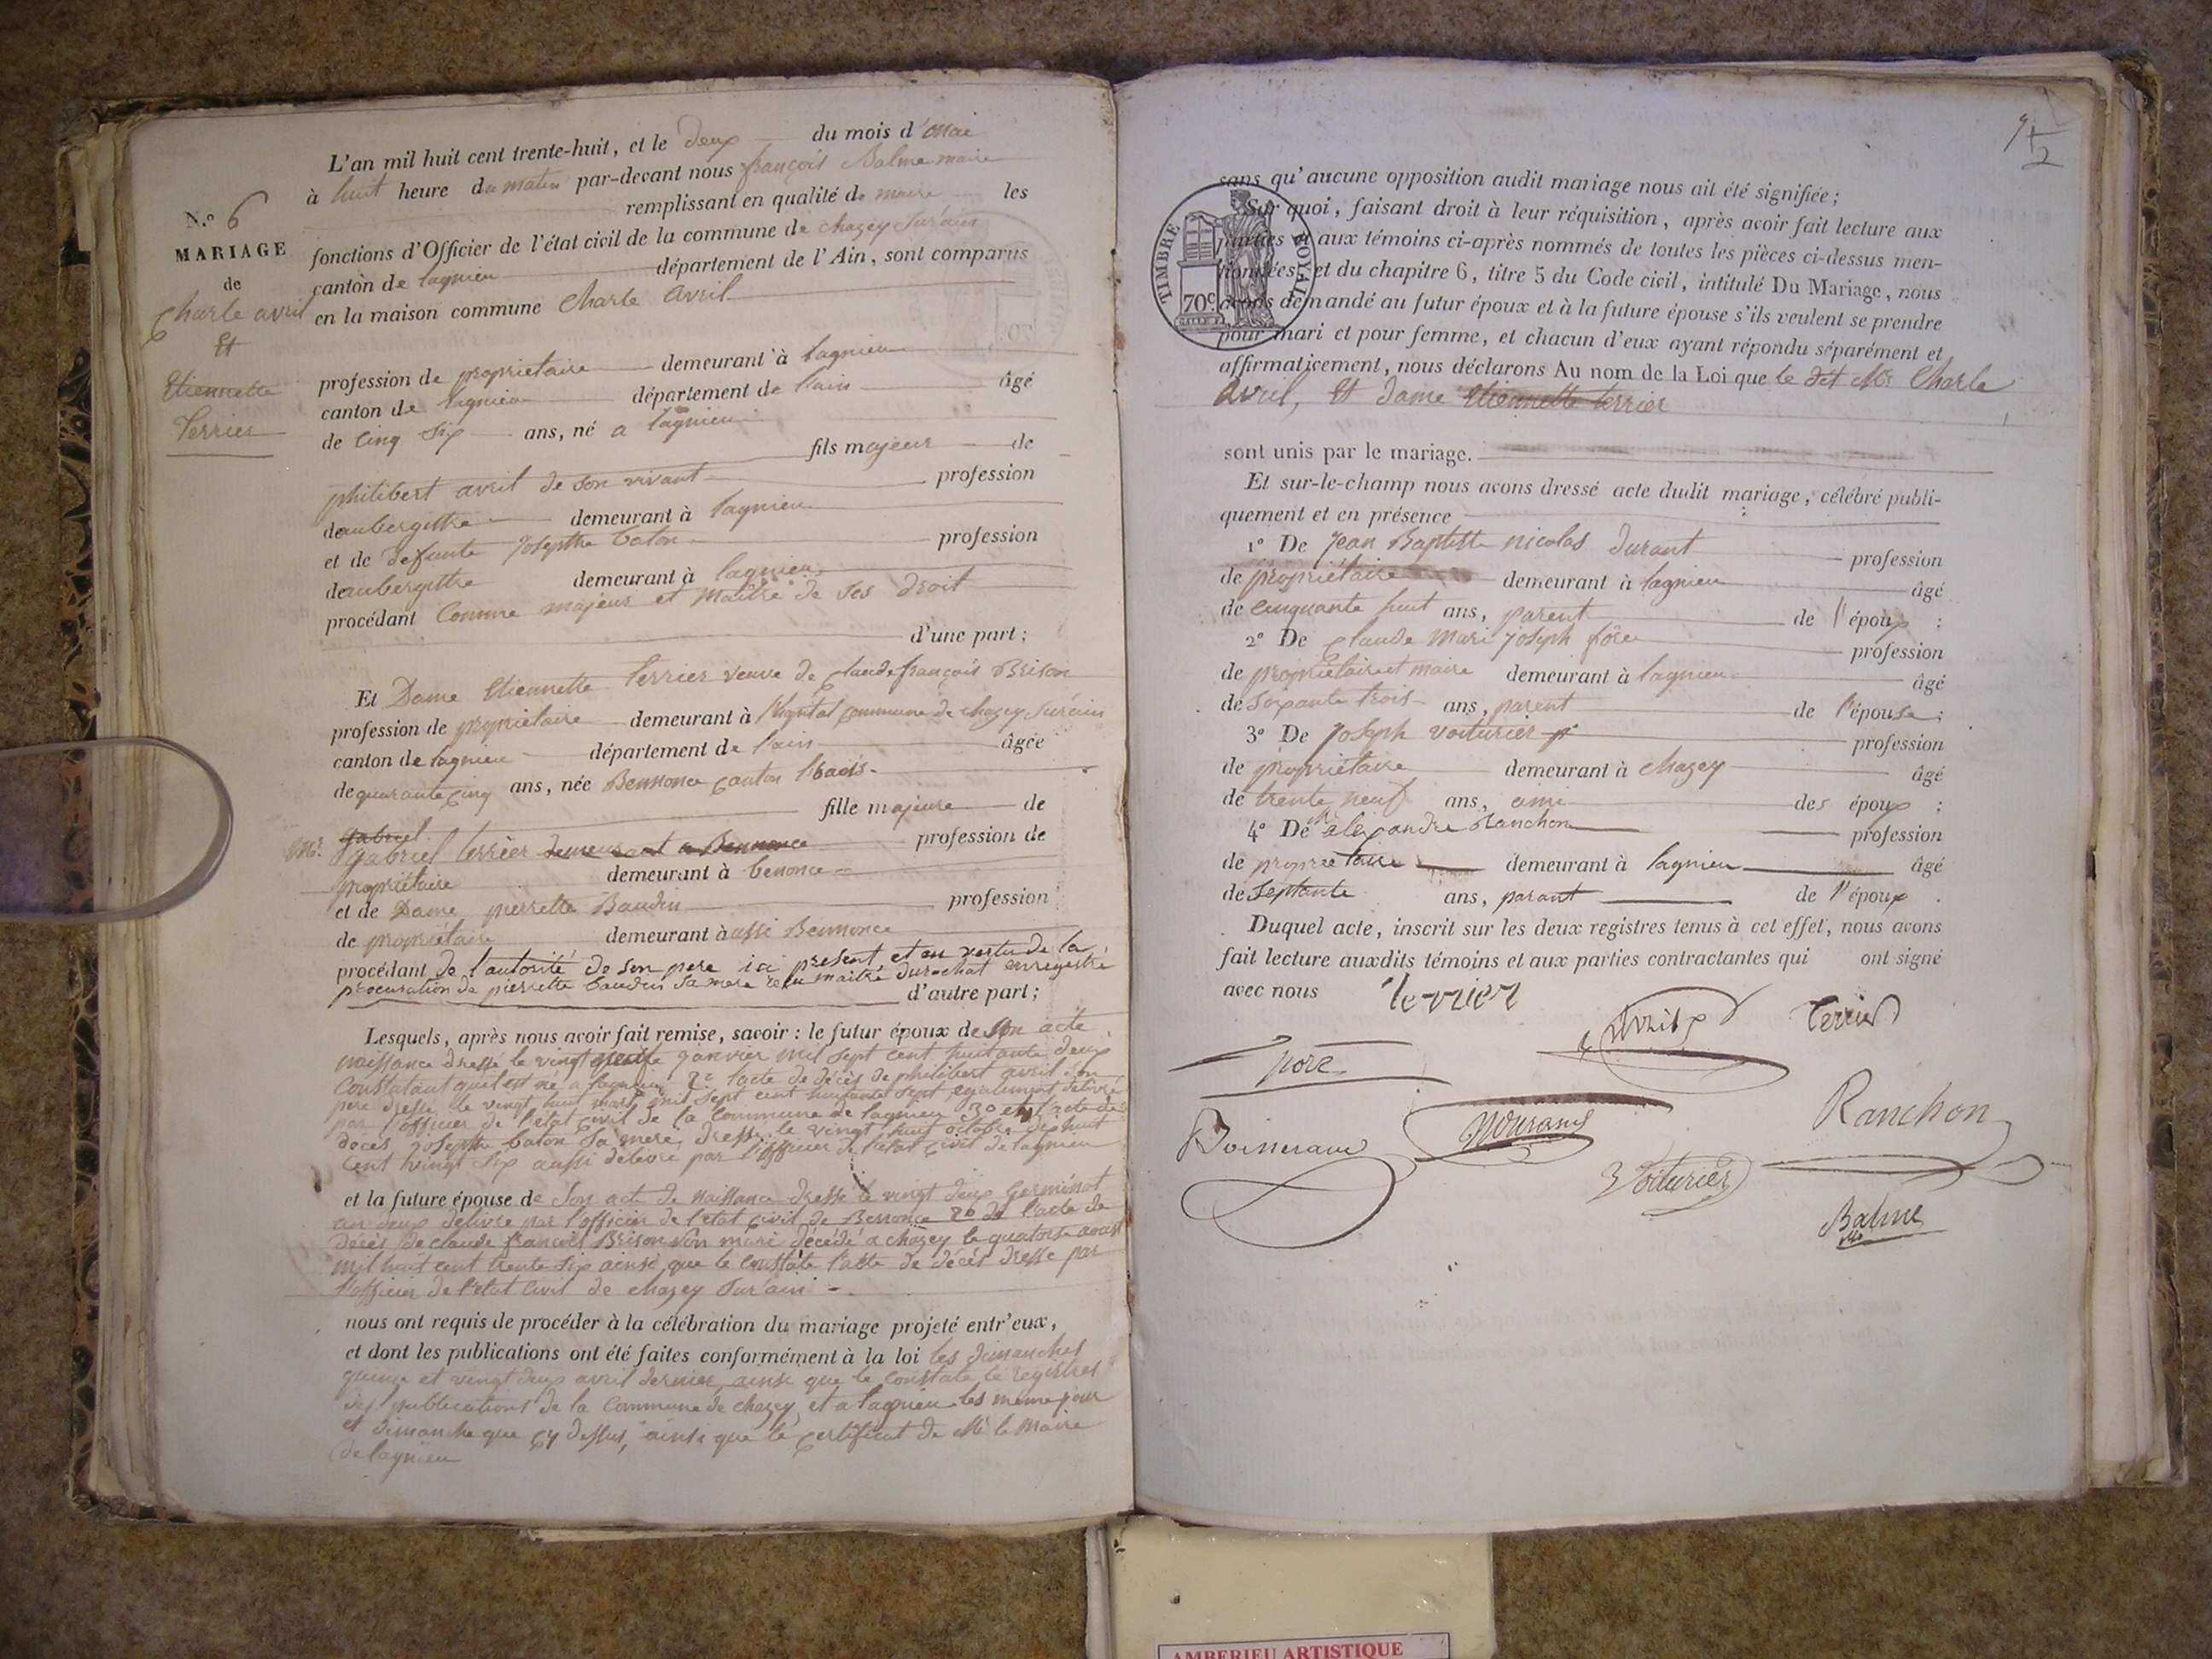 L'an mil huit cent trente-huit, et le deux du mois d'mai
à huit heure du matin par-devant nous françois Balme maire
remplissant en qualité de maire les
N.º 6
MARIAGE
de
Charle avril
Et
Etiennette
Terrier
fonctions d'Officier de l'état civil de la commune de chazey sur ain
canton de lagnieu département de l'Ain, sont comparus
en la maison commune Charle Avril
profession de propriétaire demeurant à lagnieu
canton de lagnieu département de l'ain âgé
de cinq six ans, né a lagnieu
fils majeur de
philibert avril de son vivant profession
deaubergiste demeurant à lagnieu
et de defunte Josepthe baton profession
deaubergiste demeurant à lagnieu
procédant Comme majeur et maître de ses droit
d'une part;
Et Dame Etiennette Terrier veuve de Claude françois Brison
profession de propriétaire demeurant à l'hopital commune de chazey sur ain
canton de lagnieu département de l'ain âgée
de quarante cinq ans, née Bennonce canton lhuis
fille majeure de
gabriel
Mr. gabriel terrier demeurant a Bennonce profession de
propriétaire demeurant à benonce
et de Dame pierrette Baudin profession
de propriétaire demeurant à aussi Bennonce
procédant de l'autorité de son pere ici present et en vertu de la
procuration de pierrette baudin sa mere recu maitre durochat enregistré
d'autre part;
Lesquels, après nous avoir fait remise, savoir : le futur époux de son acte
naissance dressé le vingt neuf janvier mil sept cent huitante deux
Constatant quil est né a lagnieu 2º l'acte de décès de philibert avril son
pere dressé le vingt huit mars mil sept cent huitante sept egalement délivré
par l'officier de l'état civil de la Commune de lagnieu 3º et l'acte de
deces Josepthe baton sa mere, dressé le vingt huit octobre dix huit
cent vingt six aussi delivré par l'officier de l'etat civil de lagnieu
et la future épouse de son acte de naissance dressé le vingt deux Germinal
an deux délivré par l'officier de l'etat civil de Bennonce 2º de l'acte de
décès de claude françois Brison son mari décédé a chazey le quatorse avril
mil huit cent trente six ainsi que le constate l'acte de décès dressé par
l'officier de l'etat civil de chazey sur ain
nous ont requis de procéder à la célébration du mariage projeté entr'eux,
et dont les publications ont été faites conformément à la loi les dimanches
quinze et vingt deux avril dernier, ainsi que le constate le registres
des publications de la Commune de chazey, et a lagnieu les meme jour
et dimanche que cy dessus, ainsi que le certificat de Mr le maire
de lagnieu
TIMBRE ROYAL
70 c.
sans qu'aucune opposition audit mariage nous ait été signifiée;
Sur quoi, faisant droit à leur réquisition, après avoir fait lecture aux
parties et aux témoins ci-après nommés de toutes les pièces ci-dessus men-
tionnées, et du chapitre 6, titre 5 du Code civil, intitulé Du Mariage, nous
avons demandé au futur époux et à la future épouse s'ils veulent se prendre
pour mari et pour femme, et chacun d'eux ayant répondu séparément et
affirmativement, nous déclarons Au nom de la Loi que le dit Mr Charle
Avril, Et Dame Etiennette terrier
sont unis par le mariage.
Et sur-le-champ nous avons dressé acte dudit mariage, célébré publi-
quement et en présence
1º De Jean Baptiste nicolas Durant profession
de propriétaire demeurant à lagnieu âgé
de cinquante huit ans, parent de l'époux :
2º De Claude Mari Joseph fôre profession
de propriétaire et maire demeurant à lagnieu âgé
de soxante trois ans, parent de l'épouse :
3º De Joseph voiturier profession
de propriétaire demeurant à chazey âgé
de trente neuf ans, ami des époux :
4º De Mr alexandre Ranchon profession
de propriétaire demeurant à lagnieu âgé
de septante ans, parant de l'époux .
Duquel acte, inscrit sur les deux registres tenus à cet effet, nous avons
fait lecture auxdits témoins et aux parties contractantes qui ont signé
avec nous terrier
Avril Terrier
fore
Ranchon
Durand
Voiturier
Balme
AMBERIEU ARTISTIQUE